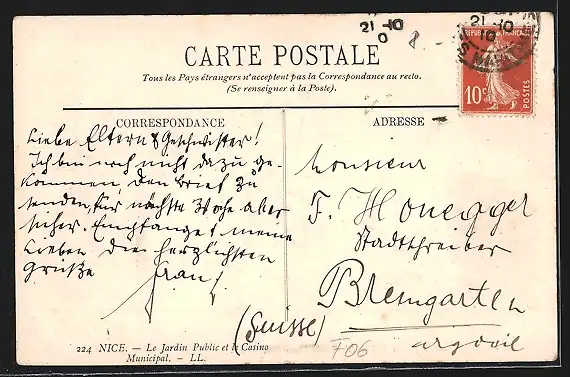 CARTE POSTALE
Tous les Pays étrangers n'acceptent pas la Correspondance au recto.
(Se renseigner à la Poste).
CORRESPONDANCE
ADRESSE
21 -10
21-10
8.-
REPUBLIQUE FRANÇAISE
10c
POSTES
Liebe Eltern & Geschwister!
Ich bin noch nicht dazu ge-
kommen, den Brief zu
senden, für nächste Woche aber
sicher. Empfanget meine
Lieben die herzlichsten
Grüße
Monsieur
F. Honegger
Stadtschreiber
Bremgarten
(Suisse)
argovie
706
224 NICE. — Le Jardin Public et le Casino
Municipal. — LL.